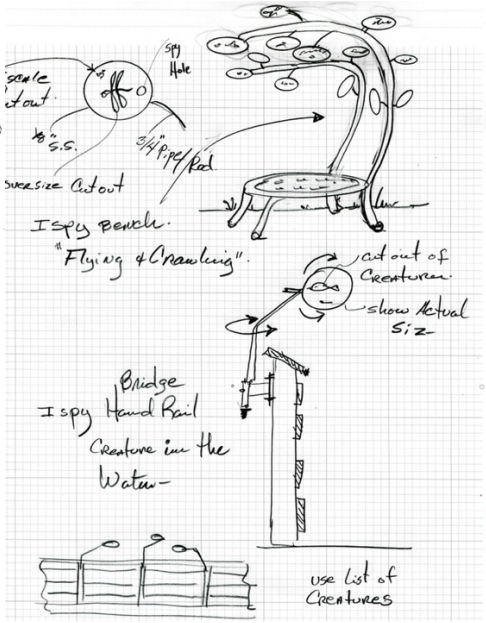 spy
Hole
scale
cutout
1/8" S.S.
3/4" Pipe/Rod
oversize Cutout
I spy Bench.
"Flying & Crawling".
cut out of
Creature.
show Actual
Siz-
Bridge
I spy Hand Rail
Creature in the
Water-
use List of
Creatures